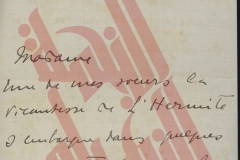 Madame
Une de mes soeurs la
vicomtesse de L'Hermite
s'embarque dans quelques